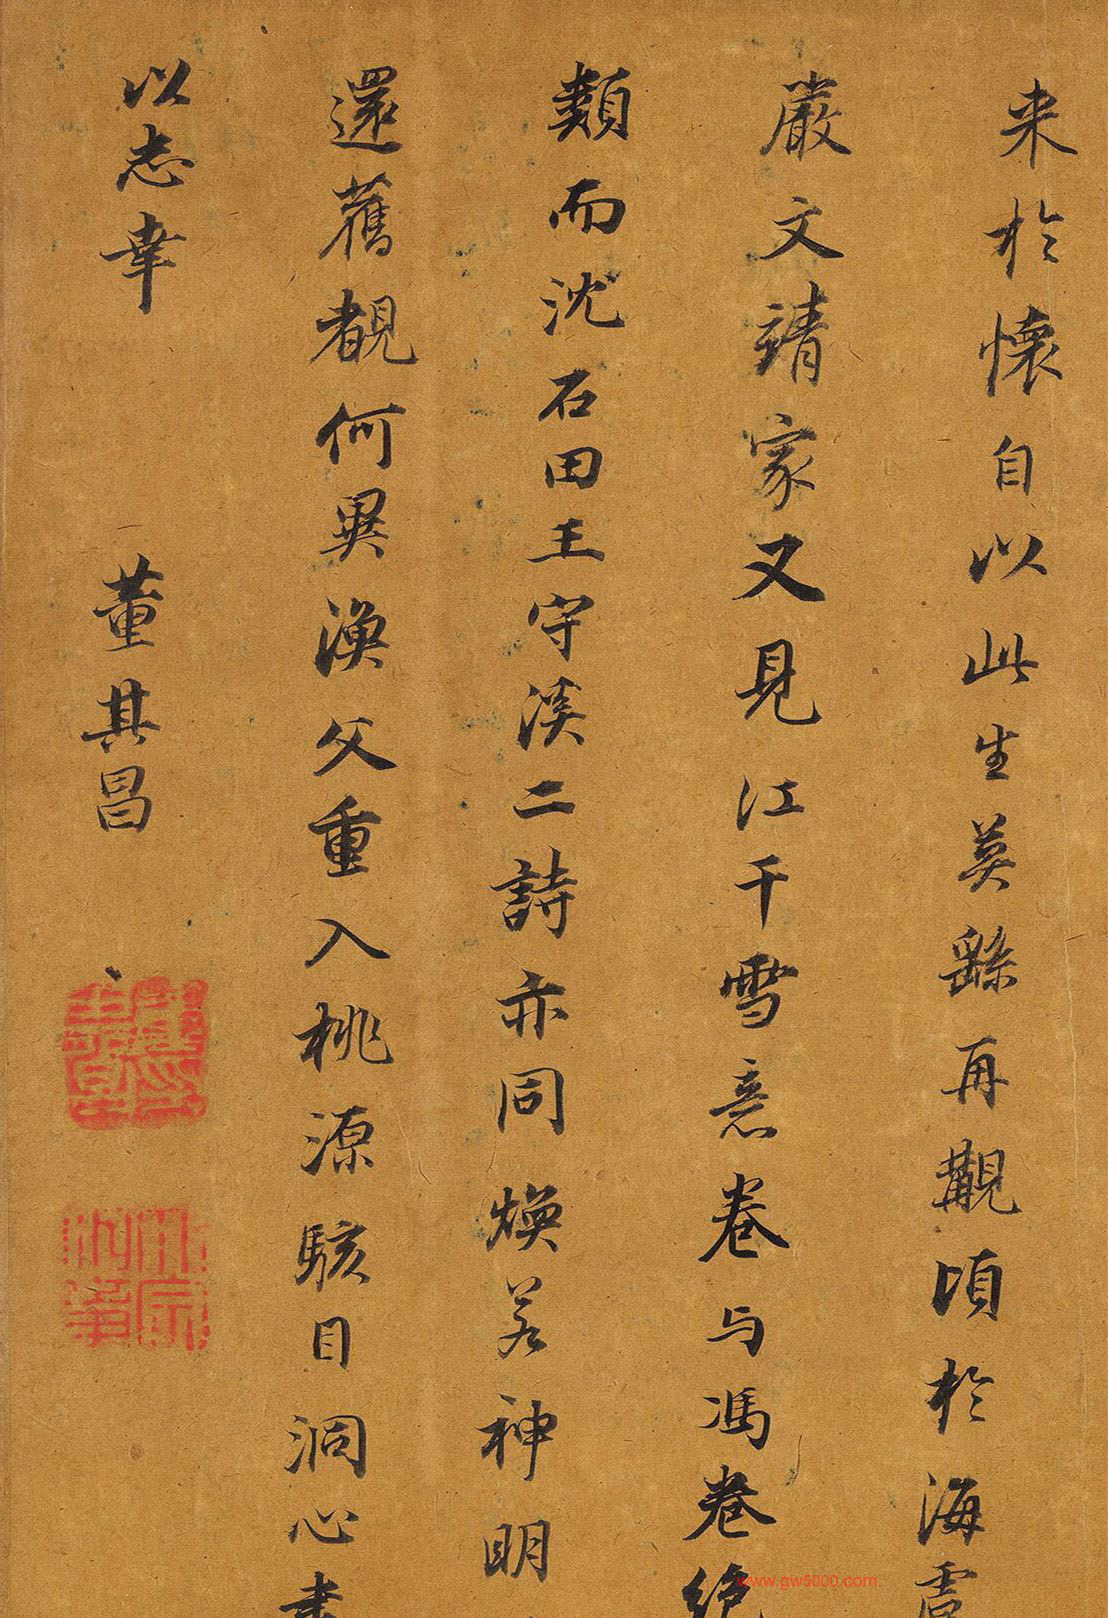 来於懷自以此生莫繇再觀頃於海虞
嚴文靖家又見江干雪意卷与馮卷絶
類而沈石田王守溪二詩亦同煥若神明
還舊觀何異漁父重入桃源駭目洞心書
以志幸
董其昌
www.gw5000.com